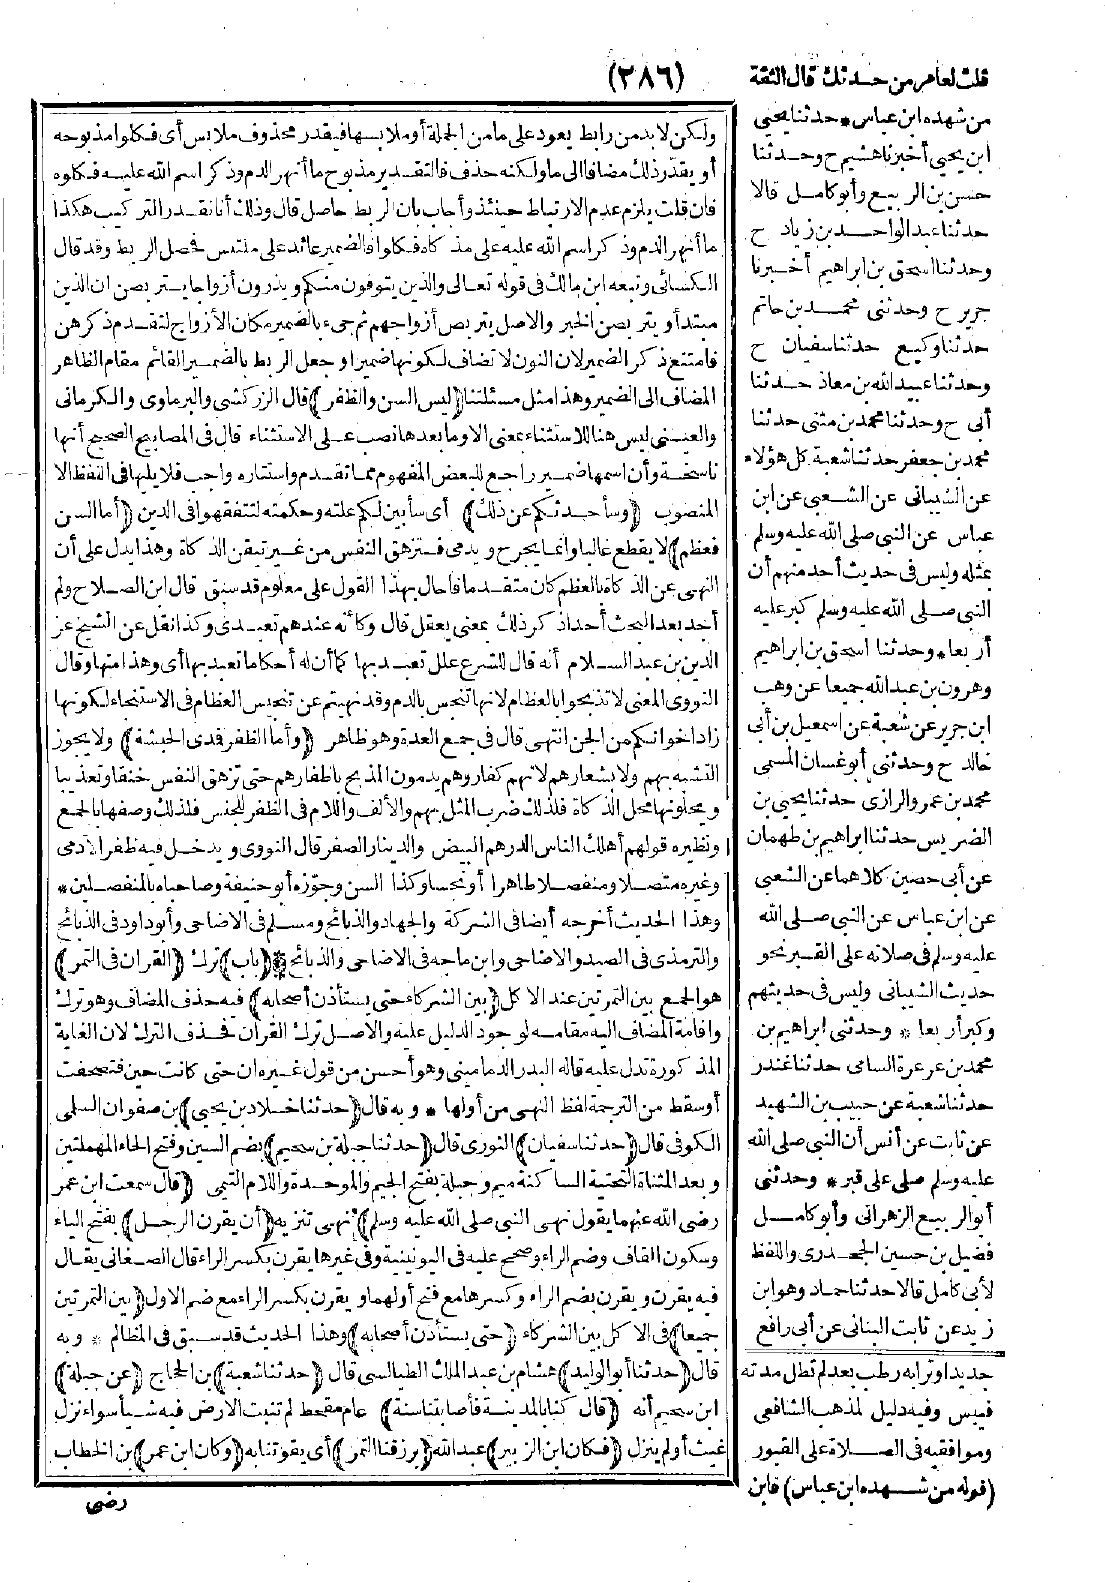 (٢٨٦)
ولكن لابد من رابط يعود على ما من الجملة أو ملابسها فيقدر محذوف ملابس أى فكلوا مذبوحه
أو يقدر ذلك مضافا الى ما ولكنه حذف فالتقدير مذبوح ما أنهر الدم وذكر اسم الله عليه فكلوه
فان قلت يلزم عدم الارتباط حينئذ وأجاب بان الربط حاصل قال وذلك أنا نقدر التركيب هكذا
ما أنهر الدم وذكر اسم الله عليه على مذكاه فكلوا فالضمير عائد على ملتبس فحصل الربط وقد قال
الكسائى وتبعه ابن مالك فى قوله تعالى والذين يتوفون منكم ويذرون أزواجا يتربصن ان الذين
مبتدأ ويتربصن الخبر والاصل يتربص أزواجهم ثم جىء بالضمير مكان الأزواج لتقدم ذكرهن
فامتنع ذكر الضمير لان النون لا تضاف لكونها ضميرا وجعل الربط بالضمير القائم مقام الظاهر
المضاف الى الضمير وهذا مثل مسئلتنا (ليس السن والظفر) قال الزركشى والبرماوى والكرمانى
والعينى ليس هنا للاستثناء بمعنى الا وما بعدها نصب على الاستثناء قال فى المصابيح الصحيح أنها
ناسخة وأن اسمها ضمير راجع للبعض المفهوم مما تقدم واستتاره واجب فلا يليها فى اللفظ الا
المنصوب (وسأحدثكم عن ذلك) أى سأبين لكم علته وحكمته لتتفقهوا فى الدين (أما السن
فعظم) لا يقطع غالبا وانما يجرح ويدمى فتزهق النفس من غير تيقن الذكاة وهذا يدل على أن
النهى عن الذكاة بالعظم كان متقدما فاحال بهذا القول على معلوم قد سبق قال ابن الصلاح ولم
أجد بعد البحث أحدا ذكر ذلك بمعنى يعقل قال وكأنه عندهم تعبدى وكذا نقل عن الشيخ عز
الدين بن عبد السلام أنه قال للشرع علل تعبد بها كما أن له أحكاما تعبد بها أى وهذا منها وقال
النووى المعنى لا تذبحوا بالعظام لانها تنجس بالدم وقد نهيتم عن تنجيس العظام فى الاستنجاء لكونها
زاد اخوانكم من الجن انتهى قال فى جمع العدة وهو ظاهر (وأما الظفر فمدى الحبشة) ولا يجوز
التشبه بهم ولا بشعارهم لانهم كفار وهم يدمون المذبح باظفارهم حتى تزهق النفس خنقا وتعذيبا
ويحلونها محل الذكاة فلذلك ضرب المثل بهم والألف واللام فى الظفر للجنس فلذلك وصفها بالجمع
ونظيره قولهم أهلك الناس الدرهم البيض والدينار الصفر قال النووى ويدخل فيه ظفر الآدمى
وغيره متصلا ومنفصلا طاهرا أو نجسا وكذا السن وجوّزه أبو حنيفة وصاحباه بالمنفصلين *
وهذا الحديث أخرجه أيضا فى الشركة والجهاد والذبائح ومسلم فى الاضاحى وأبو داود فى الذبائح
والترمذى فى الصيد والاضاحى وابن ماجه فى الاضاحى والذبائح * (باب) ترك (القران فى التمر)
هو الجمع بين التمرتين عند الاكل (بين الشركاء حتى يستأذن أصحابه) فيه حذف المضاف وهو ترك
واقامة المضاف اليه مقامه لوجود الدليل عليه والاصل ترك القران فحذف الترك لان الغاية
المذكورة تدل عليه قاله البدر الدمامينى وهو أحسن من قول غيره ان حتى كانت حين فتصحفت
أو سقط من الترجمة لفظ النهى من أولها * وبه قال (حدثنا خلاد بن يحيى) بن صفوان السلمى
الكوفى قال (حدثنا سفيان) الثورى قال (حدثنا جبلة بن سحيم) بضم السين وفتح الحاء المهملتين
وبعد المثناة التحتية الساكنة ميم وجبلة بفتح الجيم والموحدة واللام التيمى (قال سمعت ابن عمر
رضى الله عنهما يقول نهى النبى صلى الله عليه وسلم) نهى تنزيه (أن يقرن الرجل) بفتح الياء
وسكون القاف وضم الراء وصحح عليه فى اليونينية وفى غيرها يقرن بكسر الراء قال الصغانى يقال
فيه يقرن ويقرن بضم الراء وكسرها مع فتح أولهما ويقرن بكسر الراء مع ضم الاول (بين التمرتين
جميعا) فى الاكل بين الشركاء (حتى يستأذن أصحابه) وهذا الحديث قد سبق فى المظالم * وبه
قال (حدثنا أبو الوليد) هشام بن عبد الملك الطيالسى قال (حدثنا شعبة) بن الحجاج (عن جبلة)
ابن سحيم أنه (قال كنا بالمدينة فأصابتنا سنة) عام مقحط لم تنبت الارض فيه شيأ سواء نزل
غيث أو لم ينزل (فكان ابن الزبير) عبد الله (يرزقنا التمر) أى يقوتنا به (وكان ابن عمر) بن الخطاب
رضى
قلت لعامر من حدثك قال الثقة
من شهده ابن عباس * حدثنا يحيى
ابن يحيى أخبرنا هشيم ح وحدثنا
حسن بن الربيع وأبو كامل قالا
حدثنا عبد الواحد بن زياد ح
وحدثنا اسحق بن ابراهيم أخبرنا
جرير ح وحدثنى محمد بن حاتم
حدثنا وكيع حدثنا سفيان ح
وحدثنا عبيد الله بن معاذ حدثنا
أبى ح وحدثنا محمد بن مثنى حدثنا
محمد بن جعفر حدثنا شعبة كل هؤلاء
عن الشيبانى عن الشعبى عن ابن
عباس عن النبى صلى الله عليه وسلم
بمثله وليس فى حديث أحد منهم أن
النبى صلى الله عليه وسلم كبر عليه
أربعا * وحدثنا اسحق بن ابراهيم
وهرون بن عبد الله جميعا عن وهب
ابن جرير عن شعبة عن اسمعيل بن أبى
خالد ح وحدثنى أبو غسان المسمى
محمد بن عمرو الرازى حدثنا يحيى بن
الضريس حدثنا ابراهيم بن طهمان
عن أبى حصين كلاهما عن الشعبى
عن ابن عباس عن النبى صلى الله
عليه وسلم فى صلاته على القبر نحو
حديث الشيبانى وليس فى حديثهم
وكبر أربعا * وحدثنى ابراهيم بن
محمد بن عرعرة السامى حدثنا غندر
حدثنا شعبة عن حبيب بن الشهيد
عن ثابت عن أنس أن النبى صلى الله
عليه وسلم صلى على قبر * وحدثنى
أبو الربيع الزهرانى وأبو كامل
فضيل بن حسين الجحدرى واللفظ
لأبى كامل قالا حدثنا حماد وهو ابن
زيد عن ثابت البنانى عن أبى رافع
جديدا وترابه رطب بعد لم تطل مدته
فيبس وفيه دليل لمذهب الشافعى
وموافقيه فى الصلاة على القبور
(قوله من شهده ابن عباس) فابن